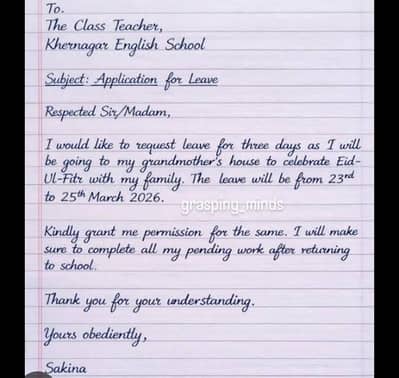 To.
The Class Teacher,
Khernagar English School
Subject: Application for Leave
Respected Sir/Madam,
I would like to request leave for three days as I will
be going to my grandmother's house to celebrate Eid-
Ul-Fitr with my family. The leave will be from 23rd
to 25th March 2026.
grasping_minds
Kindly grant me permission for the same. I will make
sure to complete all my pending work after returning
to school.
Thank you for your understanding.
Yours obediently,
Sakina